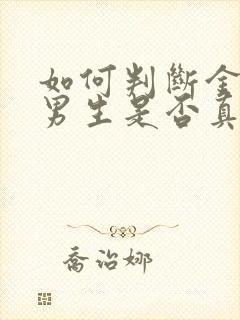 如何判斷金
男生是否真
喬治娜